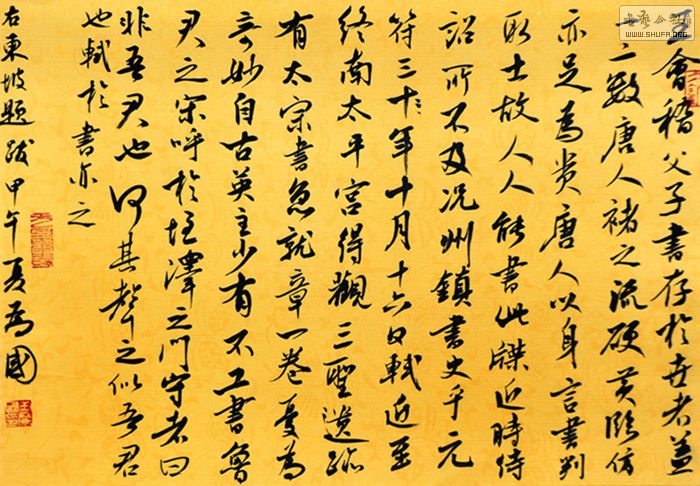 王會稽父子書存於世者蓋
一二數唐人褚之流硬黃臨仿
亦足為貴唐人以身言書判
取士故人人能書此牒近時待
詔所不及況州鎮書史乎元
符三年十月十六日軾近至
終南太平宮得觀三聖遺跡
有太宗書急就章一卷為
奇妙自古英主少有不工書魯
君之宋呼於垤澤之門守者曰
非吾君也何其聲之似吾君
也軾於書亦之
右東坡題跋甲午夏為國
WWW.SHUFA.ORG